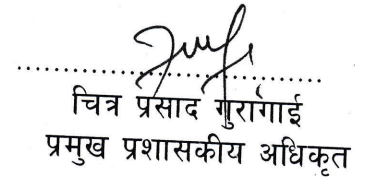 चित्र प्रसाद गुरांगाई
प्रमुख प्रशासकीय अधिकृत